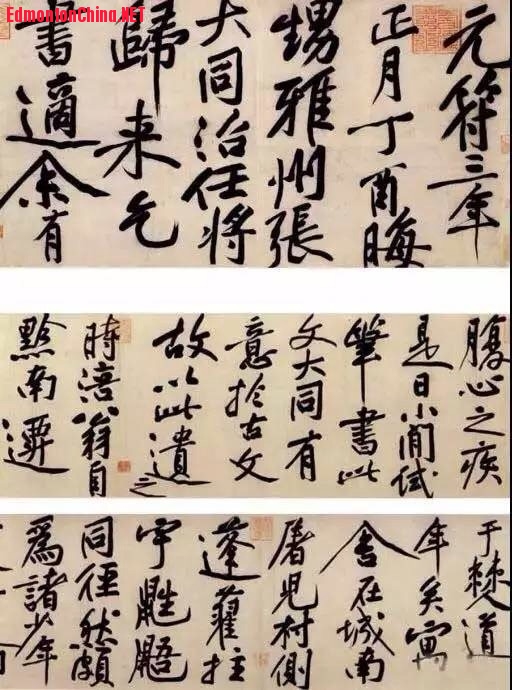 EdmontonChina.NET
元符三年
正月丁酉晦
甥雅州張
大同治任將
歸来乞
書適余有
腹心之疾
是日小閒試
筆書此
文大同有
意於古文
故以此遺之
時涪翁自
黔南遷
于僰道
年矣寓
舍在城南
屠兒村側
蓬藋拄
宇鼪鼯
同徑然頗
爲諸少年